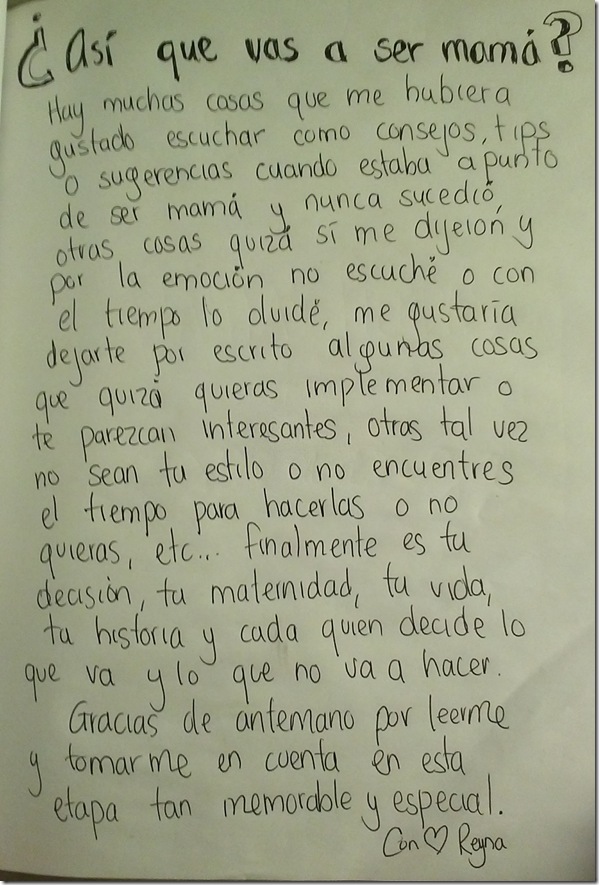 ¿Así que vas a ser mamá?
Hay muchas cosas que me hubiera
gustado escuchar como consejos, tips
o sugerencias cuando estaba apunto
de ser mamá y nunca sucedió,
otras cosas quizá sí me dijeron y
por la emoción no escuché o con
el tiempo lo olvidé, me gustaría
dejarte por escrito algunas cosas
que quizá quieras implementar o
te parezcan interesantes, otras tal vez
no sean tu estilo o no encuentres
el tiempo para hacerlas o no
quieras, etc... finalmente es tu
decisión, tu maternidad, tu vida,
tu historia y cada quien decide lo
que va y lo que no va a hacer.
Gracias de antemano por leerme
y tomarme en cuenta en esta
etapa tan memorable y especial.
Con ♡ Reyna